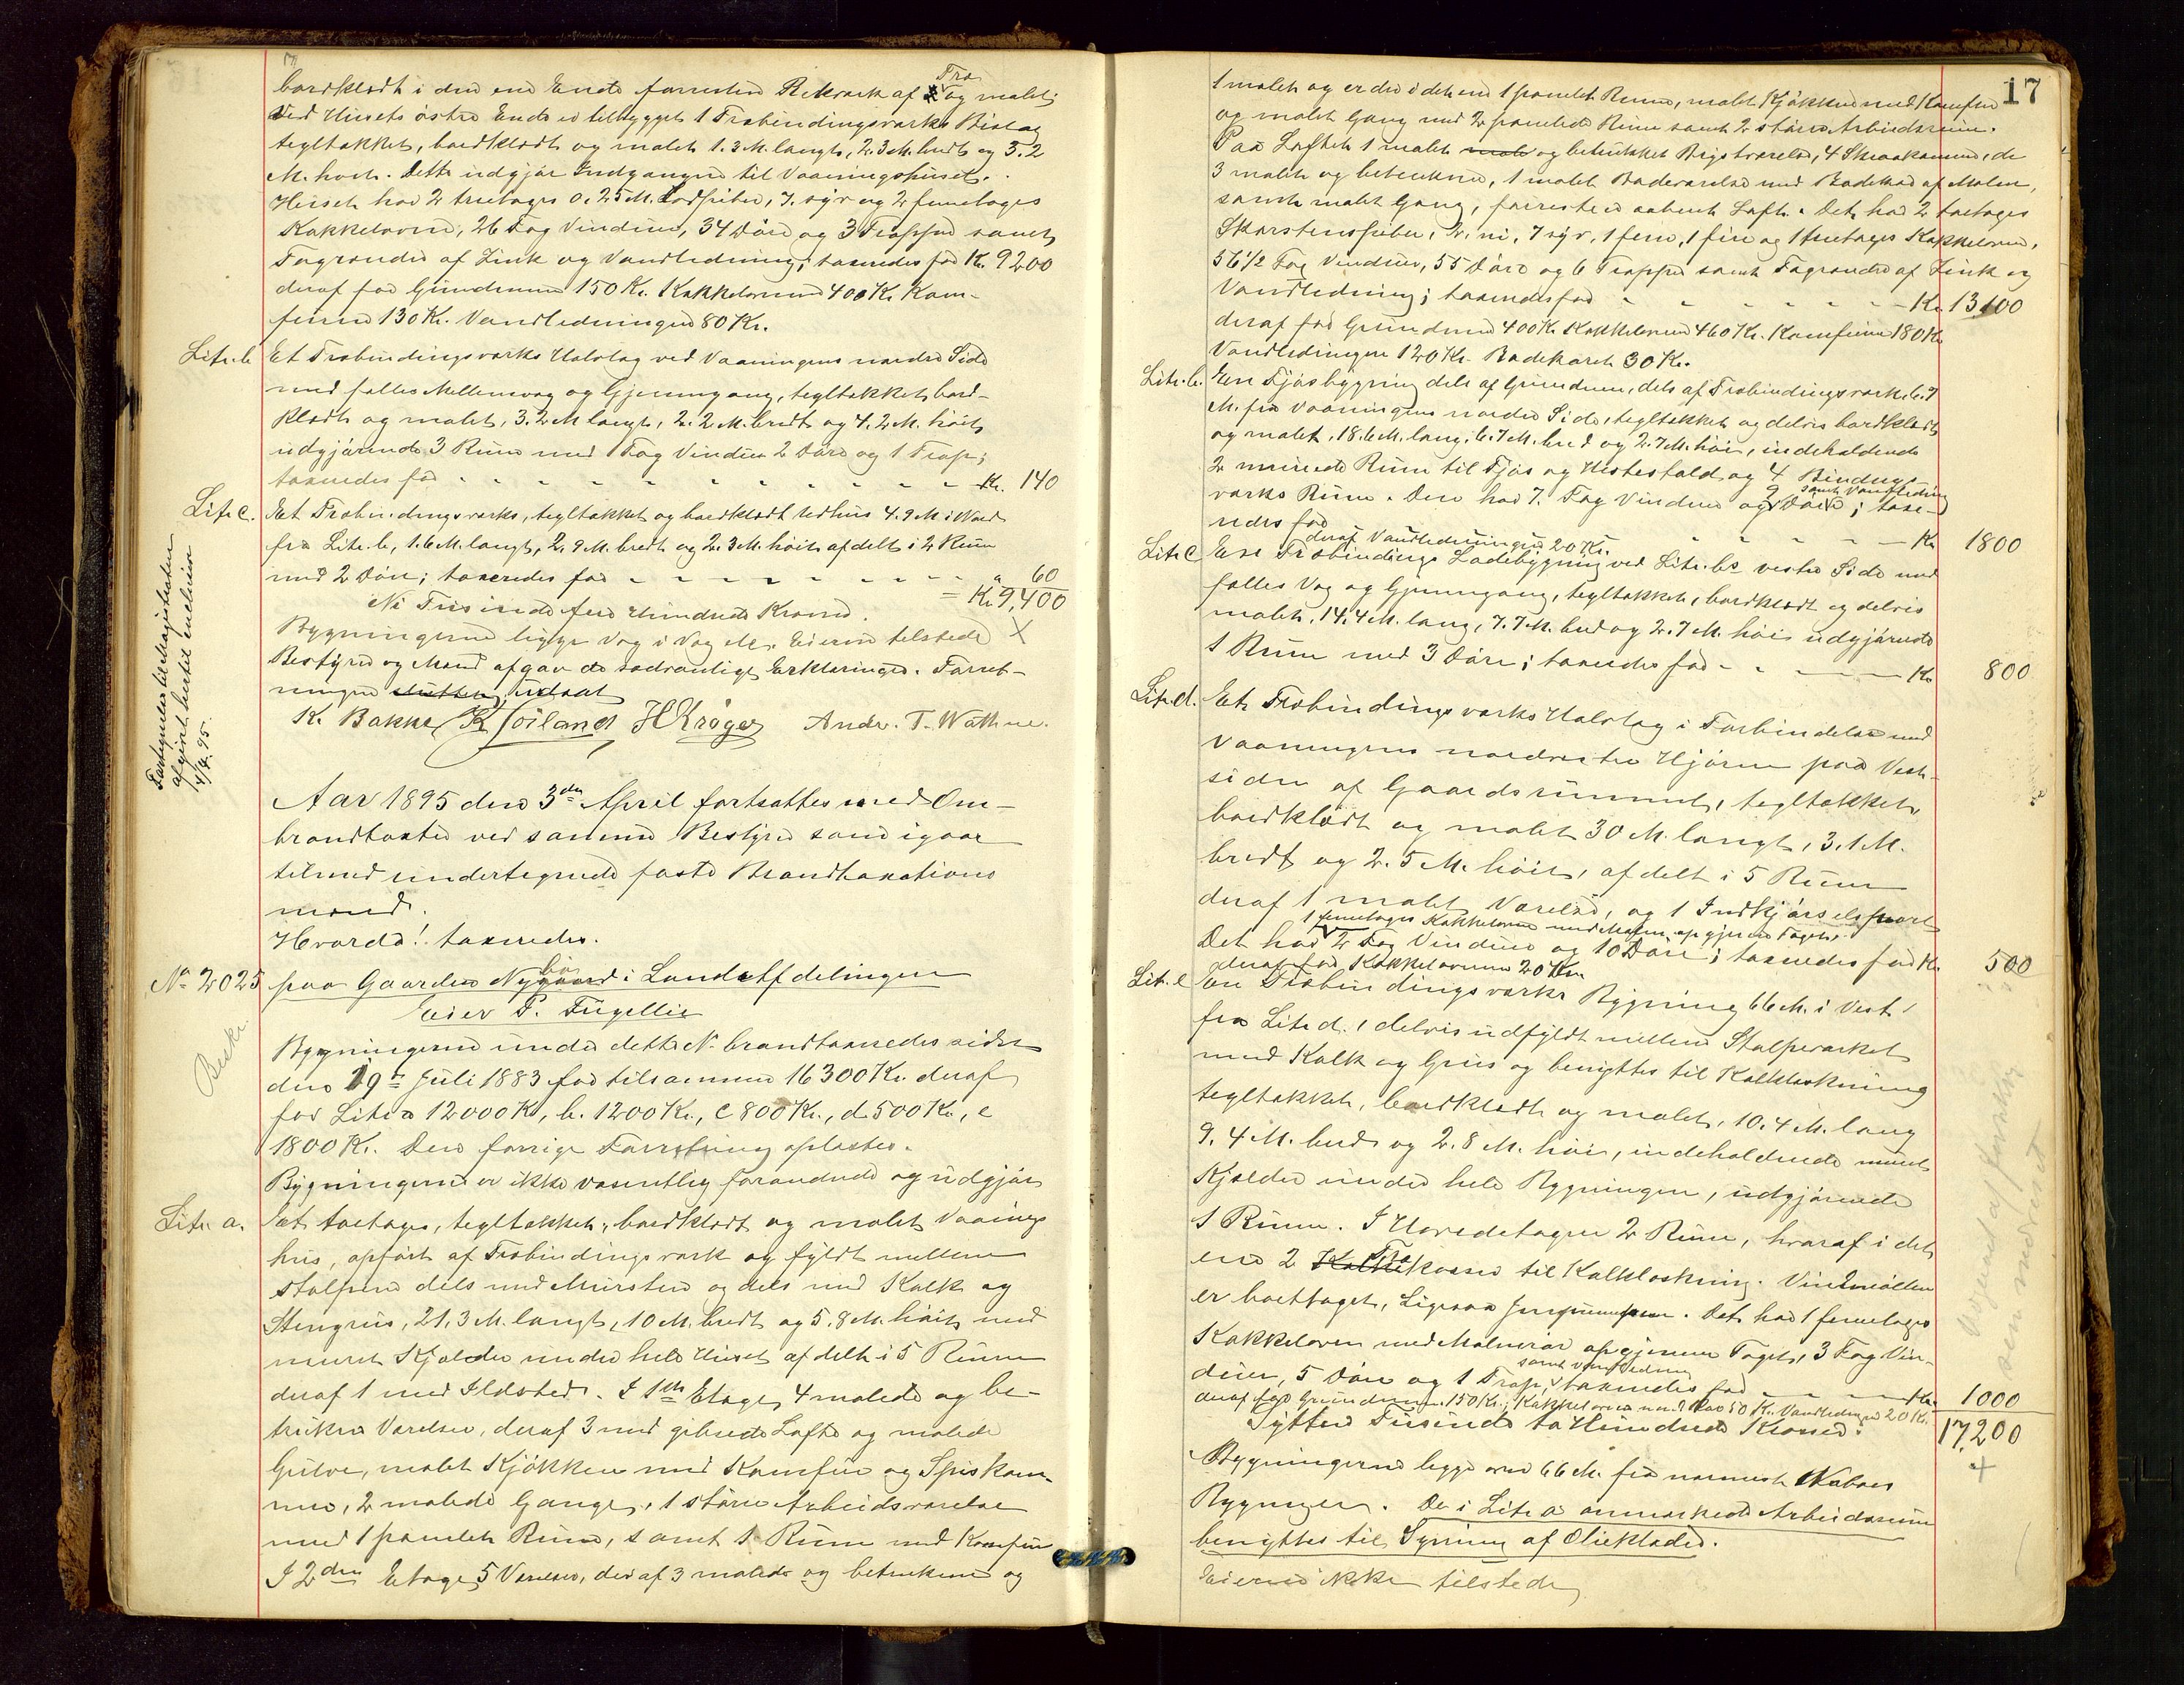 bordklædt i den ene Ende forresten Rekværk af Træ og malet.
Ved Husets østre Ende er tilbygget 1 Træbindingsværks Bislag
tegltækket, bordklædt og malet 1.3 M. langt, 2.3 M. bredt og 3.2
M. høit. Dette udgjør Indgangen til Vaaningshuset.
Huset har 2 treetages 0.25 M. Lodpiber, 7 syv og 2 femetages
Kakkelovne, 26 Fag Vinduer, 34 Døre og 3 Trapper samt
Tagrender af Zink og Vandledning; taxeredes for Kr. 9200
deraf for Grundmuren 150 Kr. Kakkelovnene 400 Kr. Kom-
furene 130 Kr. Vandledningen 80 Kr.
Litr. b Et Træbindingsværks Halvtag ved Vaaningens nordre Side
med fælles Mellemvæg og Gjennemgang, tegltækket, bord-
klædt og malet, 3.2 M. langt, 2.2 M. bredt og 4.2 M. høit
udgjørende 3 Rum med 1 Fag Vinduer 2 Døre og 1 Trap;
taxeredes for - - - - Kr. 140
Litr. c. Et Træbindingsværks, tegltækket og bordklædt Udhus 4.9 M. i Nord
fra Litr. b, 1.6 M. langt, 2.9 M. bredt og 2.3 M. høit afdelt i 2 Rum
med 2 Døre; taxeredes for - - - - " 60
Ni Tusinde fire Hundrede Kroner. = Kr. 9,400
Bygningerne ligge Væg i Væg etc. Eieren tilstede X
Bestyrer og Mænd afgav de sædvanlige Erklæringer. Forret-
ningen sluttet, udsat
K. Bakke K Soiland H Krøger Andr. T. Wathne.
Fortegnelse til Magistraten
afgivet hertil inclusive
4/4. 95.
Aar 1895 den 3die April fortsattes med Om-
brandtaxter ved samme Bestyrer som igaar
tilmed undertegnede faste Brandtaxations
mænd.
Hvorda! taxeredes.
No 2025 paa Gaarden Nygaard i Landafdelingen
bø
Eier P. Fugellie
Beskr.
Bygningerne under dette No brandtaxeredes sidst
den 19de Juli 1883 for tilsammen 16300 Kr. deraf
for Litr a 12000 Kr, b. 1200 Kr., c 800 Kr., d. 500 Kr., e
1800 Kr. Den forrige Forretning oplæstes.
Bygningerne er ikke væsentlig forandrede og udgjør
Litr. a. Et toetages, tegltækket, bordklædt og malet Vaanings
hus, opført af Træbindingsværk og fyldt mellem
Stolperne dels med Mursten og dels med Kalk og
Stengrus, 21,3 M. langt, 10 M. bredt og 5.8 M. høit med
muret Kjælder under hele Huset afdelt i 5 Rum
deraf 1 med Ildsted. I 1ste Etage 4 malede og be-
trukne Værelser, deraf 3 med gibsede Lofte og malede
Gulve, malet Kjøkken med Komfur og Spiskam-
mer, 2 malede Gange, 1 større Arbeidsværelse
med 1 panelet Rum, samt 1 Rum med Komfur
I 2den Etage 5 Værelser, deraf 3 malede og betrukne og
17
1 malet og er der i det ene 1 panelet Rum, malet Kjøkken med Komfur
og malet Gang med 2 panelede Rum samt 2 større Arbeidsrum.
Paa Loftet 1 malet og betrukket Kvistværelse, 4 Skraakamre, de
3 malet og betrukne, 1 malet Badeværelse med Badekar af Malm,
samt malet Gang, forresten aabent Loft. Det har 2 toetages
Skorstenspiber, 2 ni, 7 syv, 1 fem, 1 fire og 1 treetages Kakkelovne,
56 1/2 Fag Vinduer, 55 Døre og 6 Trapper samt Tagrender af Zink og
Vandledning; taxeredes for - - - - Kr 13100
deraf for Grundmuren 400 Kr. Kakkelovnene 460 Kr. Komfurene 180 Kr
Vandledningen 120 Kr. Badekaret 30 Kr.
Litr. b. En Fjøsbygning dels af Grundmur, dels af Træbindingsværk 6.9
M. fra Vaaningens nordre Side, tegltækket og delvis bordklædt
og malet, 18.6 M. lang, 6.7 M. bred og 2.7 M. høi, indeholdende
2 murede Rum til Fjøs og Hestestald og 4 Bindings-
værks Rum. Den har 7 Fag Vinduer og 9 Døre samt Vandledning; taxe-
redes for - - - - Kr 1800
deraf Vandledningen 20 Kr.
Litr c En Træbindings Ladebygning ved Litr. bs vestre Side med
fælles Væg og Gjennemgang, tegltækket, bordklædt og delvis
malet, 14.4 M. lang, 7.7 M. bred og 2.7 M. høi udgjørende
1 Rum med 3 Døre; taxeredes for - - - - Kr 800
Litr. d. Et Træbindingsværks Halvtag i Forbindelse med
Vaaningens nordvestre Hjørne paa Vest-
siden af Gaardsrummet, tegltækket,
bordklædt og malet 30 M. langt, 3.1 M.
bredt og 2.5 M. høit, afdelt i 5 Rum
deraf 1 malet Værelse, og 1 Indkjørselsport
1 femetages Kakkelovn med Malmrør op gjennem Taget,
Det har 2 Fag Vinduer og 10 Døre; taxeredes for Kr. 500
deraf for Kakkelovnen 20 Kr.
Litr. e En Træbindingsværks Bygning 66 M. i Vest
fra Litr d., delvis udfyldt mellem Stolpeværket
med Kalk og Grus og benyttes til Kalklæskning
tegltækket, bordklædt og malet, 10.4 M. lang
9.4 M. bred og 2.8 M. høi, indeholdende muret
Kjælder under hele Bygningen, udgjørende
1 Rum. I Hovedetagen 2 Rum, hvoraf i det
ene 2 Trækasser til Kalklæskning. Vindmøllen
er borttaget, Ligesaa . Det har 1 femetages
Kakkelovn med Malmrør op gjennem Taget, 3 Fag Vin-
duer, 5 Døre og 1 Trap, samt Vandledning taxeredes for - - - Kr. 1000
deraf for Grundmuren 150 Kr., Kakkelovnen med Rør 50 Kr. Vandledningen 20 Kr.
Sytten Tusinde to Hundrede Kroner. 17,200
X
Bygningerne ligge over 66 M. fra nærmeste Naboes
Bygninger. De i Litr a anmærkede Arbeidsrum
benyttes til Syning af Olieklæder.
Eieren ikke tilstede